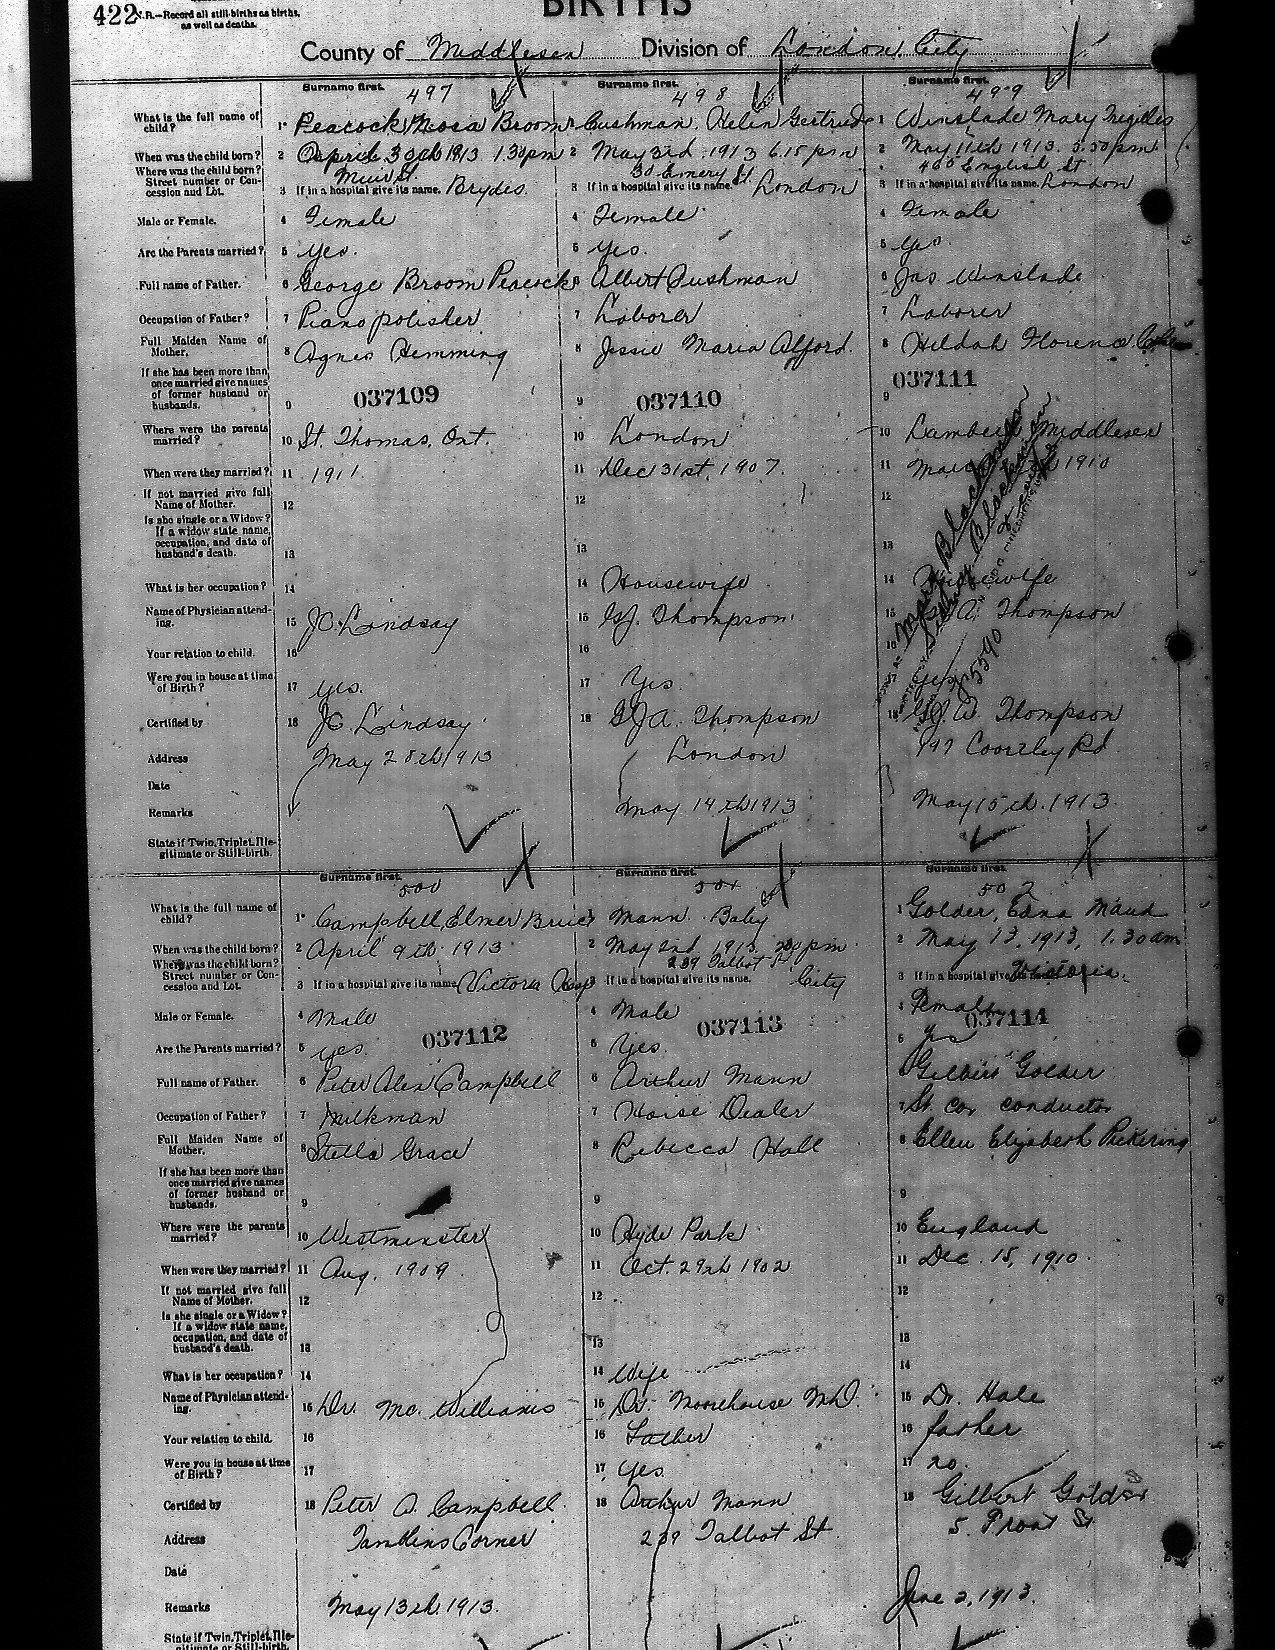 422
N.B.—Record all still-births as births,
as well as deaths.
BIRTHS
County of Middlesex Division of London City
Surname first. Surname first. Surname first.
497 498 499
What is the full name of
child?
1 Peacock Broom 1 Cushman, Helen Gertrude 1 Winslade Mary
When was the child born?
2 April 30th 1913 1.30pm 2 May 3rd, 1913 6.15 pm 2 May 11th 1913. 5.50 pm.
Where was the child born?
Street number or Con-
cession and Lot.
Muir St. 30 Emery St. 405 English St
3 If in a hospital give its name. Brydes 3 If in a hospital give its name. London 3 If in a hospital give its name. London
Male or Female.
4 Female 4 Female 4 Female
Are the Parents married?
5 yes. 5 yes. 5 yes
Full name of Father.
6 George Broom Peacock 6 Albert Cushman 6 Jas Winslade
Occupation of Father?
7 Piano polisher 7 Laborer 7 Laborer
Full Maiden Name of
Mother.
8 Agnes Hemming 8 Jessie Maria Alford. 8 Hildah Florence
If she has been more than
once married give names
of former husband or
husbands.
9 037109 9 037110 9 037111
Where were the parents
married?
10 St. Thomas, Ont. 10 London 10 Lambeth Middlesex
When were they married?
11 1911 11 Dec 31st, 1907. 11 1910
If not married give full
Name of Mother.
12 12 12
Is she single or a Widow?
If a widow state name,
occupation, and date of
husband's death.
13 13 13
What is her occupation?
14 14 Housewife 14 Housewife
Name of Physician attend-
ing.
15 J.C. Lindsay 15 G.J. Thompson. 15 A. Thompson
Your relation to child.
16 16 16
Were you in house at time
of Birth?
17 yes. 17 Yes. 17 yes
Certified by
18 J.C. Lindsay 18 G J A. Thompson 18 G.J. A. Thompson
Address
London Rd
Date
May 28th 1913 May 14th 1913 May 15th. 1913.
Remarks
State if Twin, Triplet, Ille-
gitimate or Still-birth.
Mary Blackman
5590
Surname first. Surname first. Surname first.
500 501 502
What is the full name of
child?
1 Campbell, Elmer Bruce 1 Mann. Baby 1 Golder, Edna Maud
When was the child born?
2 April 9th 1913 2 May 2nd, 1913, pm 2 May 13, 1913, 1.30 am
Where was the child born?
Street number or Con-
cession and Lot.
239 Talbot St
3 If in a hospital give its name Victoria Hosp 3 If in a hospital give its name. City 3 If in a hospital give its name Victoria.
Male or Female.
4 Male 4 Male 4 Female
037112 037113 037114
Are the Parents married?
5 yes. 5 Yes. 5 yes
Full name of Father.
6 Peter Alex Campbell 6 Arthur Mann 6 Gilbert Golder
Occupation of Father?
7 Milkman 7 Horse Dealer 7 St. Car conductor
Full Maiden Name of
Mother.
8 Stella Grace 8 Rebecca Hall 8 Ellen Elizabeth Pickering
If she has been more than
once married give names
of former husband or
husbands.
9 9 9
Where were the parents
married?
10 Westminster 10 Hyde Park 10 England
When were they married?
11 Aug, 1909 11 Oct. 29th 1902 11 Dec. 15, 1910
If not married give full
Name of Mother.
12 12 12
Is she single or a Widow?
If a widow state name,
occupation, and date of
husband's death.
13 13 13
What is her occupation?
14 14 Wife 14
Name of Physician attend-
ing.
15 Dr. Mc. Williams 15 Dr. Moorehouse M.D. 15 Dr. Hale
Your relation to child.
16 16 Father 16 father
Were you in house at time
of Birth?
17 17 Yes 17 no.
Certified by
18 Peter A. Campbell. 18 Arthur Mann 18 Gilbert Golder
Address
Tamblins Corner 239 Talbot St 5. Front St
Date
May 13th. 1913. June 2, 1913.
Remarks
State if Twin, Triplet, Ille-
gitimate or Still-birth.